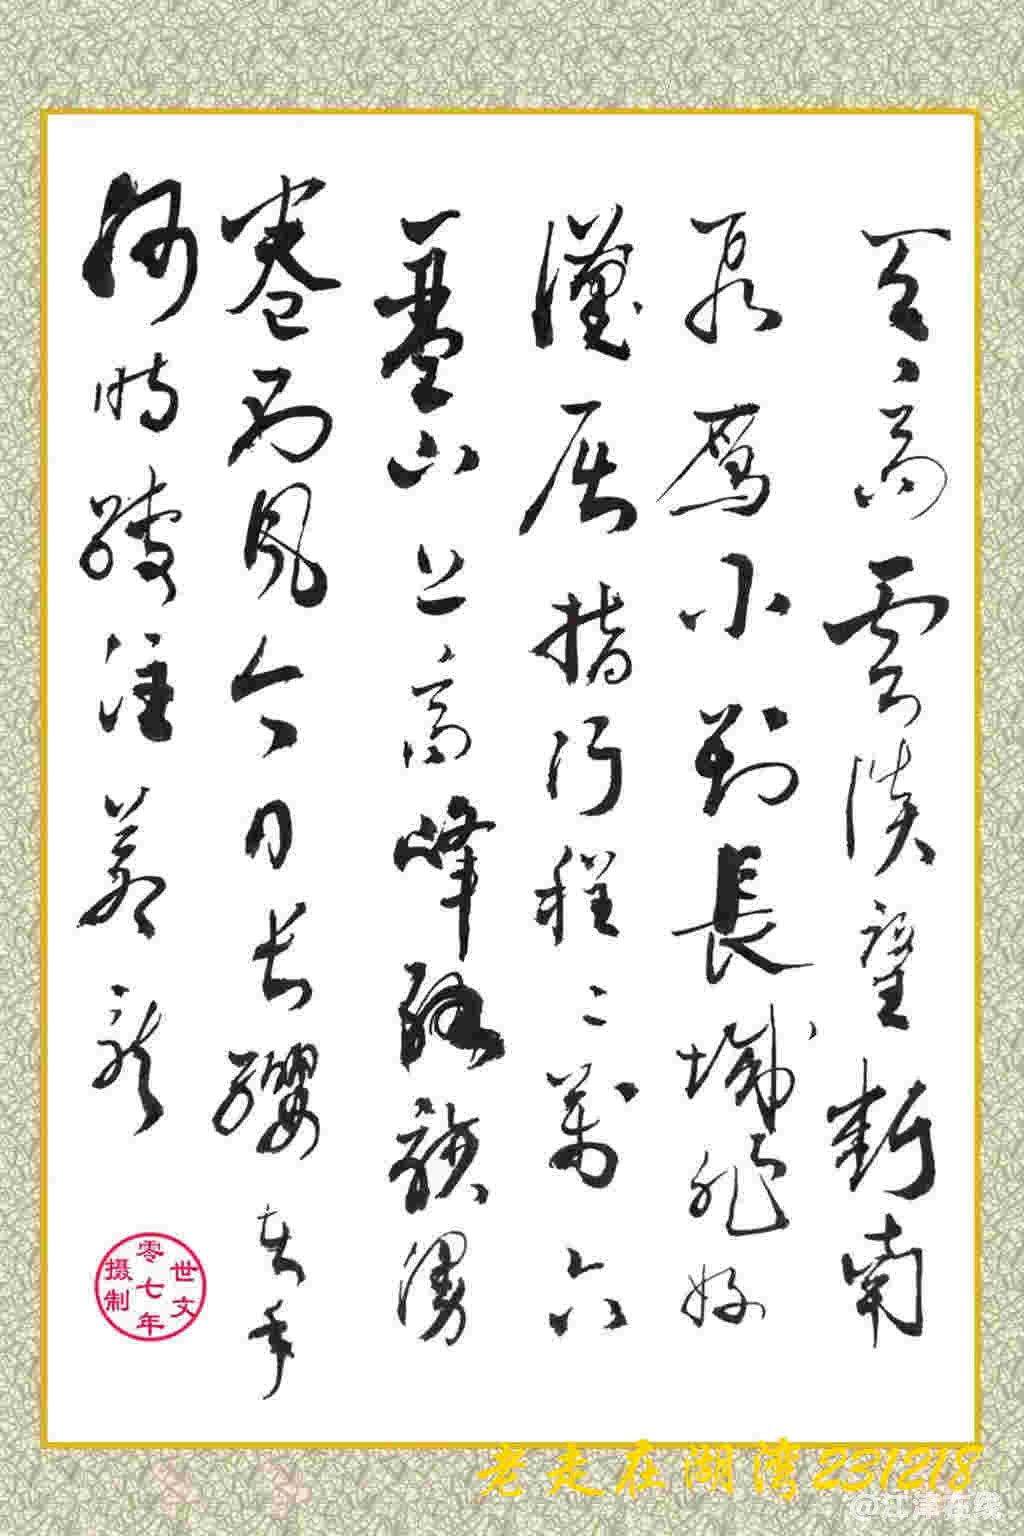 天高雲淡望断南
飛鴈不到長城非好
漢屈指行程二萬六
盤山上高峰紅旗漫
卷西風今日长纓在手
何時縛住蒼龍
世文
零七年
摄制
老走在湖湾231218